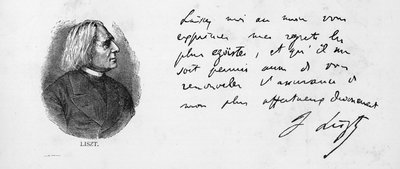 Laissez moi au moins vous
exprimer mes regrets les
plus egoïstes, et qu'il me
soit permis aussi de vous
renouveler l'assurance de
mon plus affectueux dévouement
F. Liszt
LISZT.